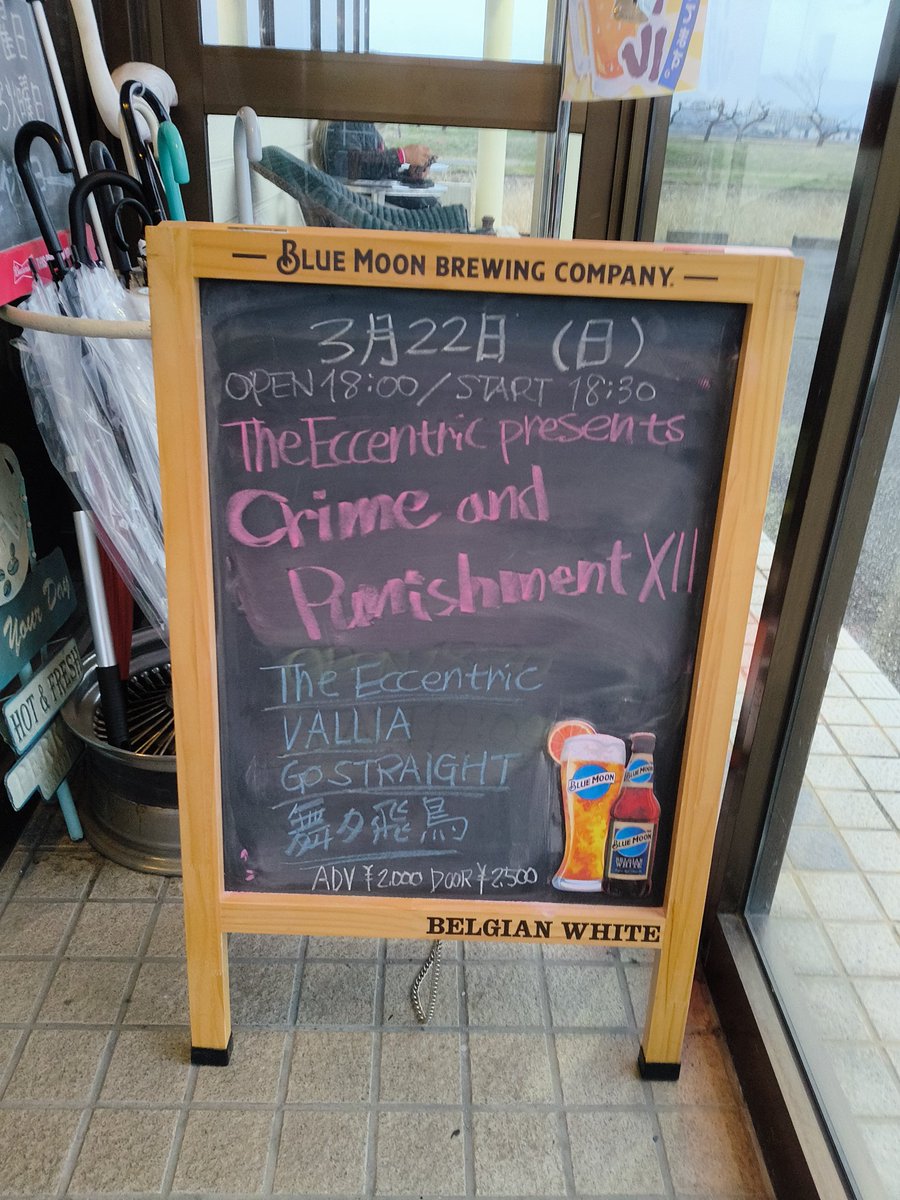 曜日
BLUE MOON BREWING COMPANY
3月22日 (日)
OPEN 18:00 / START 18:30
The Eccentric presents
Crime and
Punishment XII
The Eccentric
VALLIA
Go STRAIGHT
舞々飛鳥
ADV ¥2.000 DOOR ¥2.500
BLUE MOON
BLUE MOON
BLUE MOON
BELGIAN WHITE
BELGIAN WHITE
Your Day
HOT & FRESH